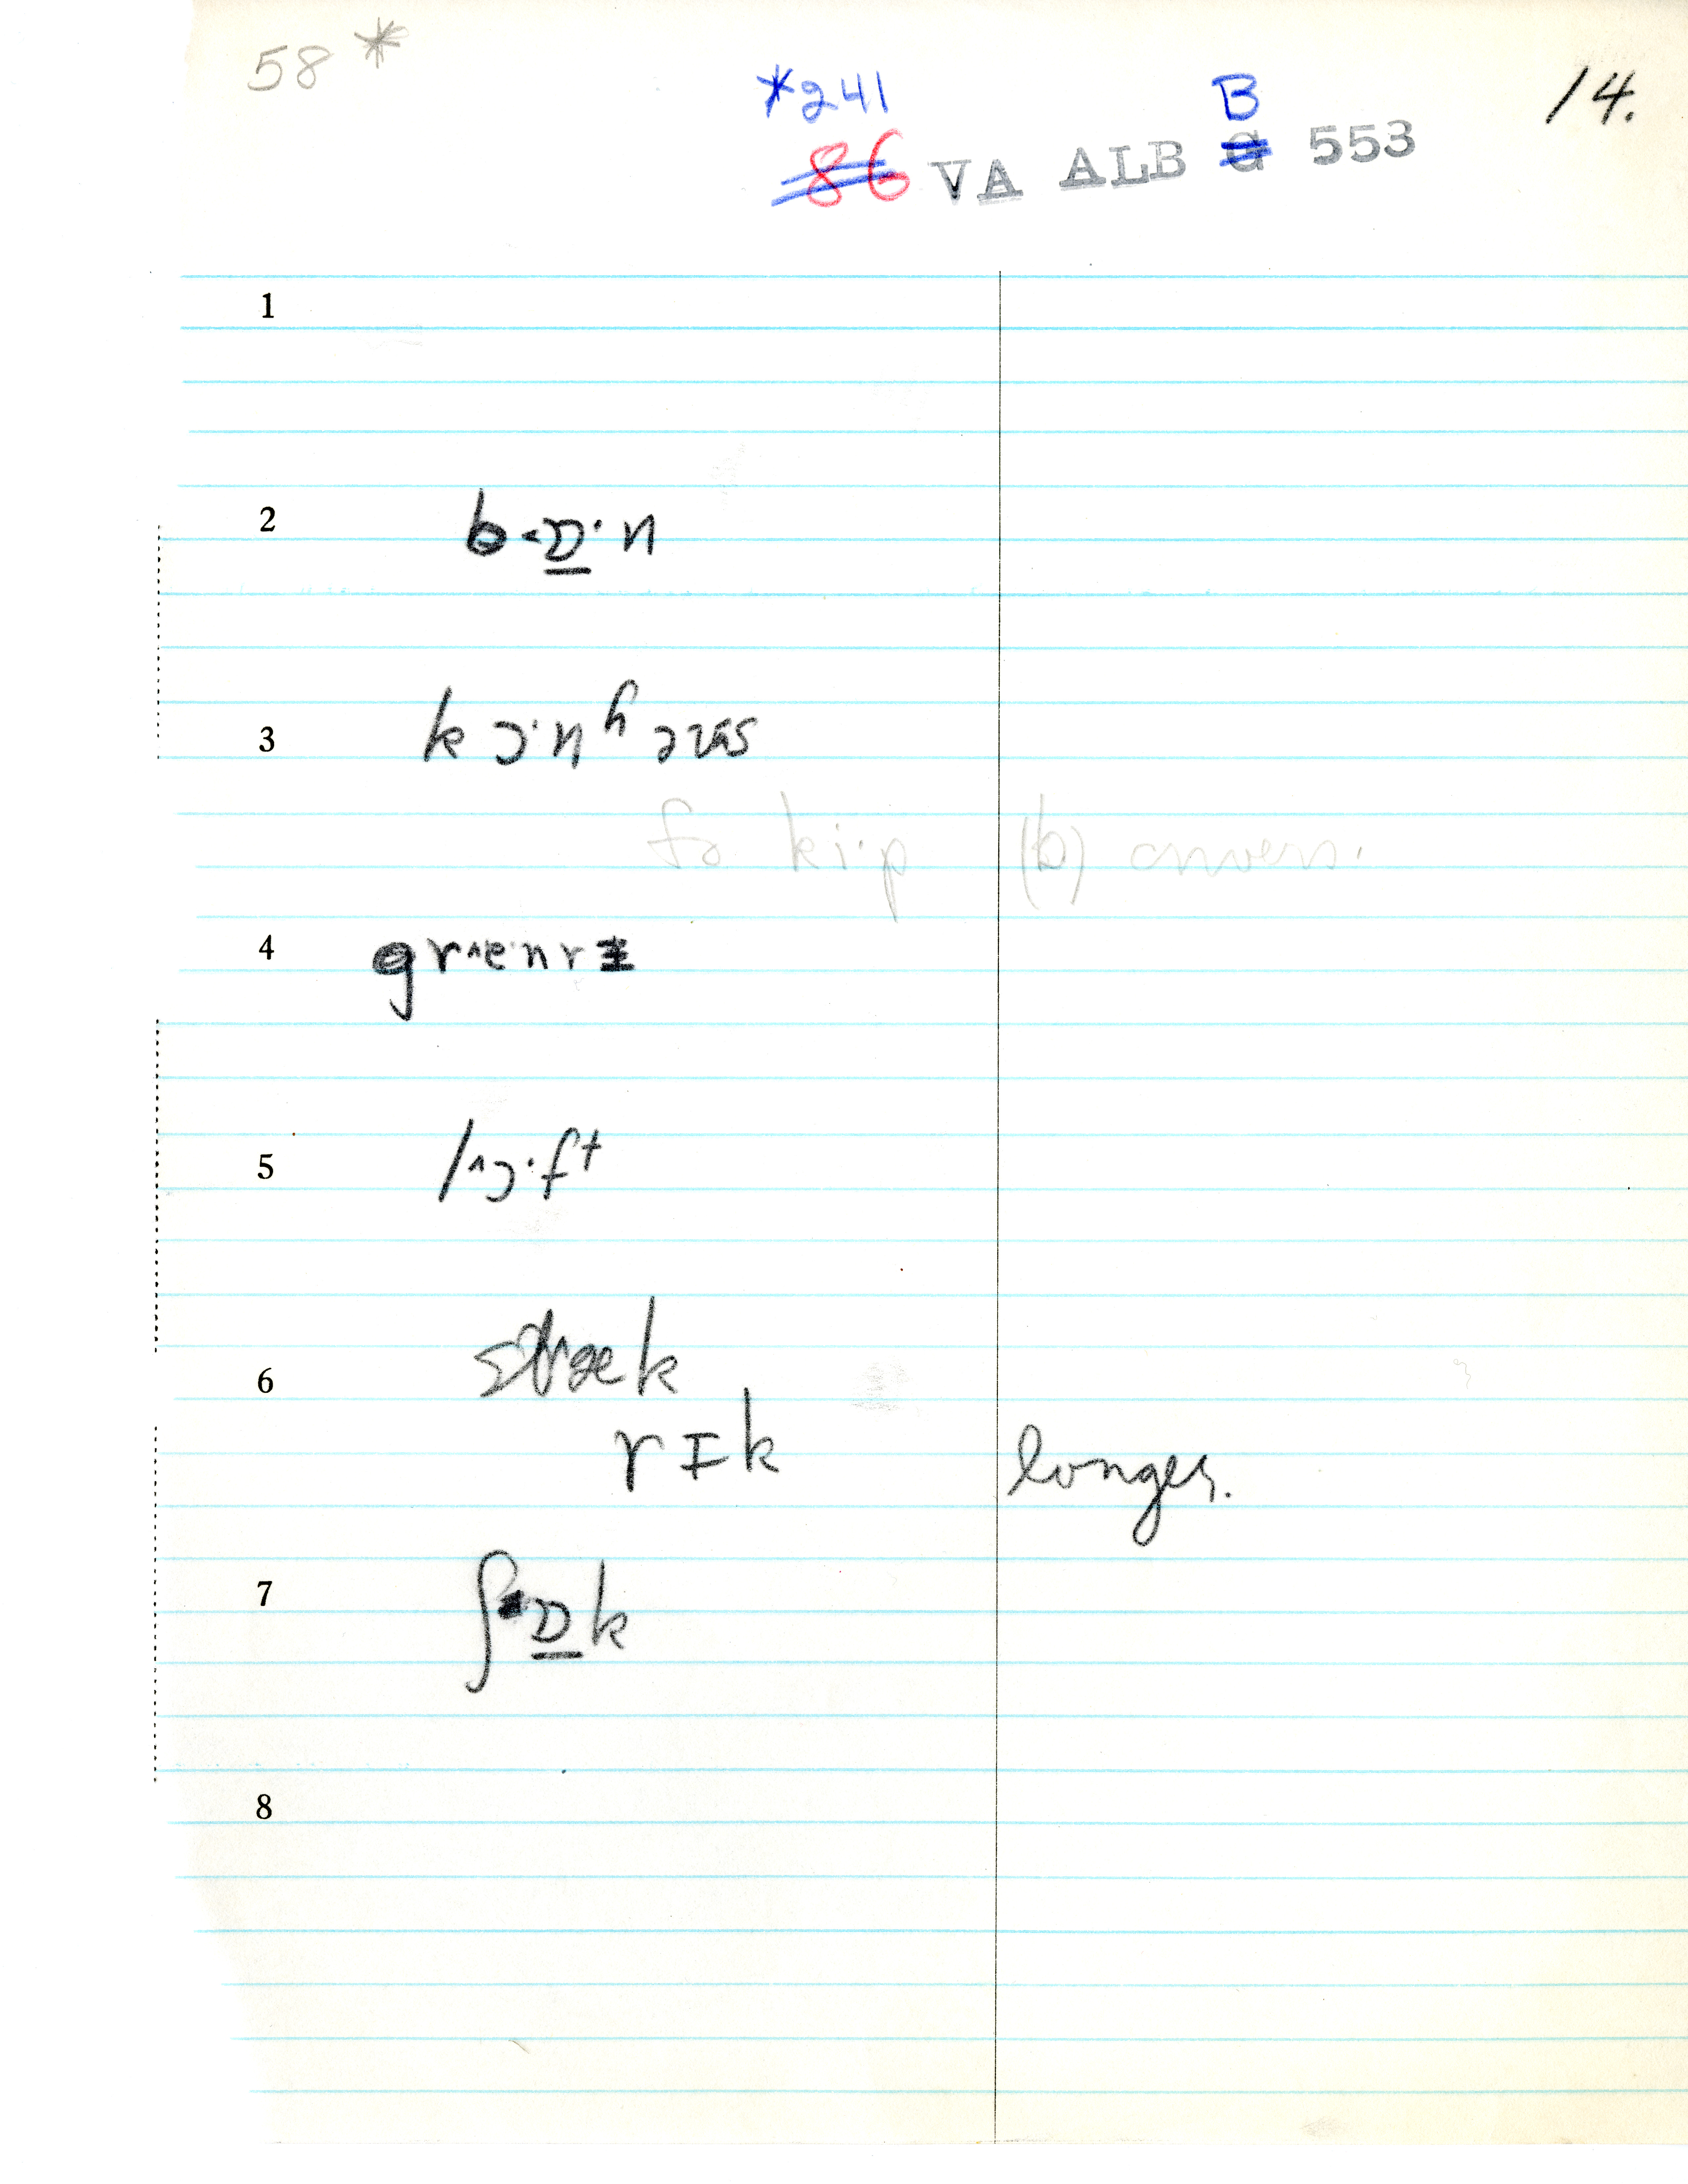 58 *
*241 B 14.
86 VA ALB G 553
1
2 b ˂ɒ̲· n
3 k ɔ·nʰ
to ki·p (b) convers.
4 gr˄e·nrɪ
5 l˄ɔ·ft
6 stræk
rɪk longer.
7 ʃ ɒ̲k
8